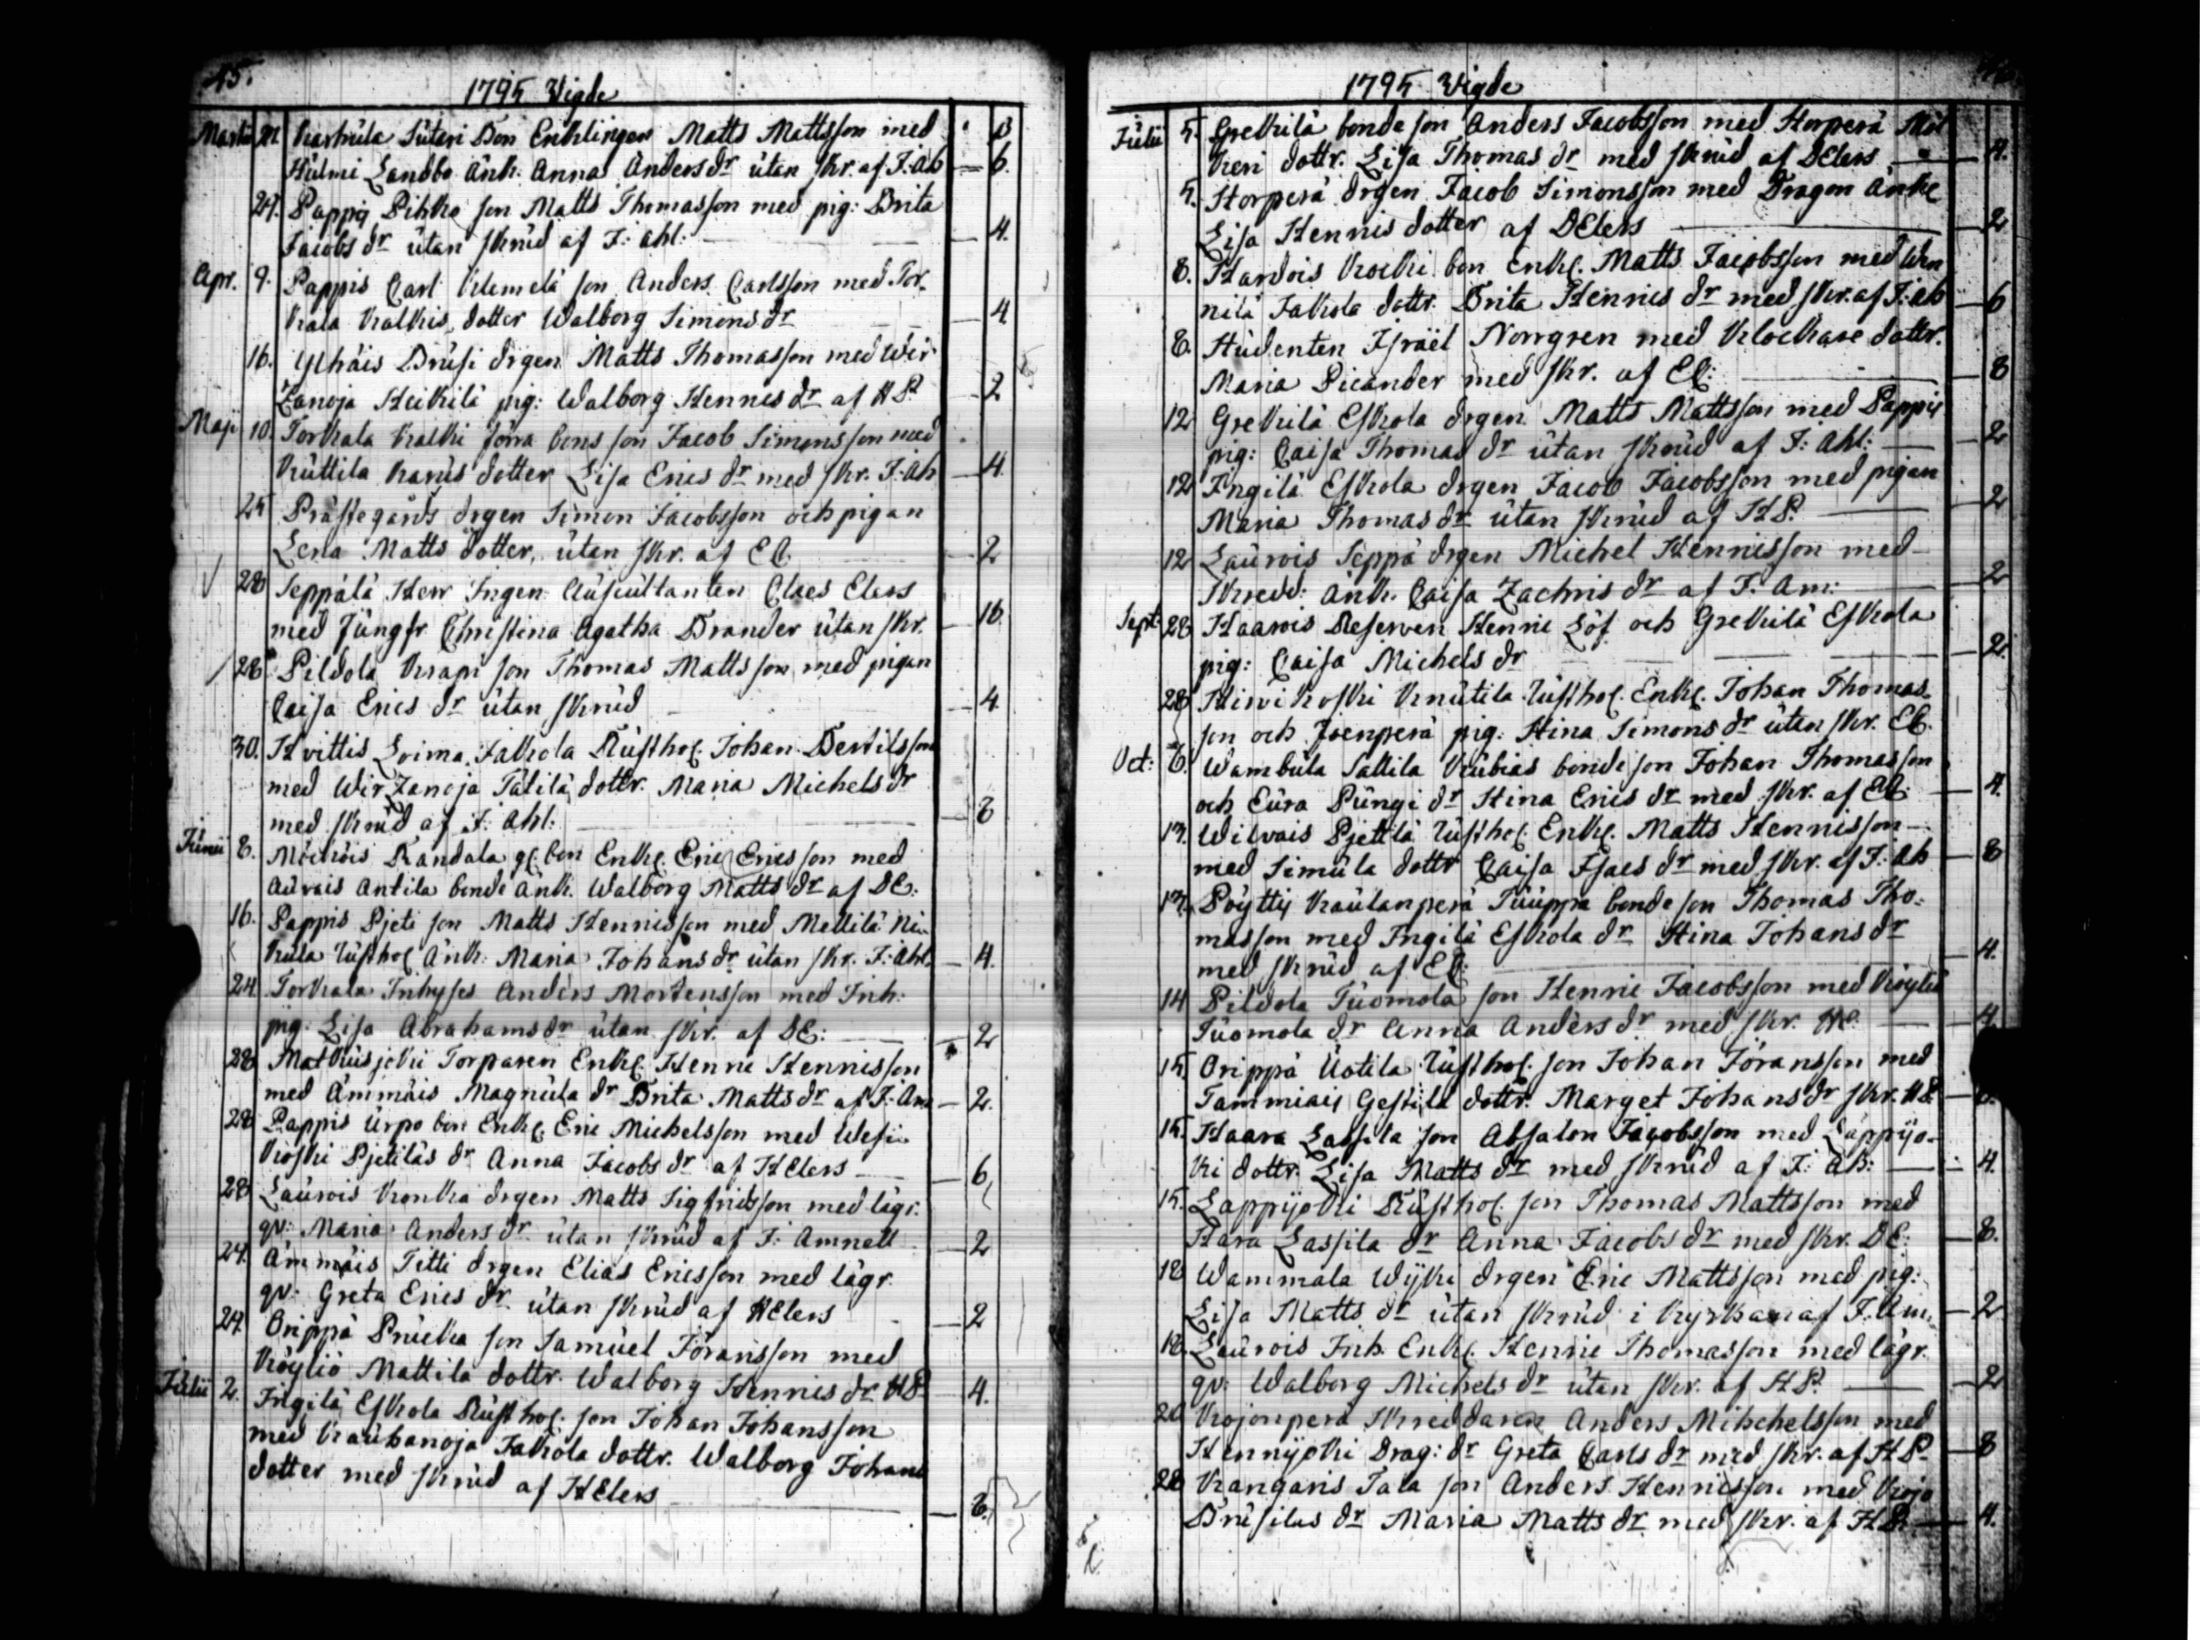 45.
1795 Wigde
Martii 22. Karhula Sutari Bon Enklingen Matts Mattsson med
Hulmi Landbo Änk. Anna Andersdr utan skr. af J: Ah — 6.
27. Pappis Pihka son Matts Thomasson med pig: Brita
Jacobs dr utan skrud af J: Ahl: — 4.
Apr. 9. Pappis Carl Klemelä son Anders Carlsson med Tor-
kala Kalkis dotter Walborg Simons dr — 4
16. Ylhäis Brusi drgen Matts Thomasson med Wir-
zanoja Heikilä pig: Walborg Hennes dr af HP. — 2
Maji 10. Torkala Kalki förra bons son Jacob Simonsson med
Kuttila Karus dotter Lisa Erics dr med skr. J: Ah — 4.
25 Prästegårds drgen Simon Jacobsson och pigan
Lena Matts dotter, utan skr. af EC. — 2
28 Seppälä Herr Ingen Auscultanten Claes Elers
med Jungfr Christina Agatha Brander utan skr. — 16
28 Pildola Krapi son Thomas Mattsson med pigan
Caisa Erics dr utan skrud — 4
30. Hvittis Loima Jakola Rusthol. Johan Bertilsson
med Wirzanoja Tätilä dottr. Maria Michels dr
med skrud af J: Ahl: — 8
Junii 8. Mickois Randala gl. bon Enkl. Eric Ericsson med
Auvais Antila bonde änk. Walborg Matts dr af DE:
16. Pappis Pjeti son Matts Hennisson med Mellilä Ni-
kula rusthol Änk: Maria Johans dr utan skr. J: Ahl. — 4.
24 Torkala Inhyses Anders Mortensson med Inh:
pig: Lisa Abrahams dr utan skr. af DE: — 2
28 Matkusjoki Torparen Enkl. Henric Hennisson
med Ämmäis Magnula dr Brita Matts dr af J: Am — 2.
28 Pappis Urpo bon Enkl. Eric Michelsson med Wesi-
koski Pjetiläs dr Anna Jacobs dr af HElers — 6
28 Laurois Konka drgen Matts Sigfridsson med lägr.
qv: Maria Anders dr utan skrud af J: Amnell — 2
24. Ämmäis Titti drgen Elias Ericsson med lägr.
qv: Greta Erics dr utan skrud af HElers — 2
24. Orippä Prucka son Samuel Jöransson med
Köyliö Mattila dottr. Walborg Hennis dr HP — 4.
Julii 2. Ingilä Eskola Rusthol. son Johan Johansson
med Kauhanoja Jakola dottr. Walborg Johans
dotter med skrud af HElers — 8.
1795 Wigde
Julii 5. Grekilä bonde son Anders Jacobsson med Horperä
keri dottr. Lisa Thomas dr med skrud af DElers — 4.
5. Horperä drgen Jacob Simonsson med Dragon änke
Lisa Hennis dotter af DElers — 2
8. Hardois Kocki bon Enkl. Matts Jacobsson med
nilä Jakola dottr. Brita Hennis dr med skr. af J: Ah — 6
8. Studenten Israël Norrgren med Klockare dottr.
Maria Picander med skr. af EC: — 8
12 Grekilä Eskola drgen Matts Mattsson med Pappis
pig: Caisa Thomas dr utan skrud af J: Ahl: — 2
12 Ingilä Eskola drgen Jacob Jacobsson med pigan
Maria Thomas dr utan skrud af HP. — 2
12 Laurois Seppä drgen Michel Hennisson med
Skredd: änk. Caisa Zachris dr af J: Am: — 2
Sept: 28 Haarois Reserven Henric Löf och Grekilä Eskola
pig: Caisa Michels dr — 2.
28 Hirvikoski Knutila rusthol. Enkl. Johan Thomas-
son och Joenperä pig. Stina Simons dr utan skr. EC.
Oct: 6. Wambula Sallila Kubias bonde son Johan Thomasson
och Eura Pungi dr Stina Erics dr med skr. af EC: — 4.
13. Wilvais Pjettilä rusthol Enkl. Matts Hennisson
med Simula dottr Caisa Isacs dr med skr. af J: Ah — 8
13. Pöyttis Kaulanperä Tuuppa bonde son Thomas Tho-
masson med Ingilä Eskola dr Stina Johans dr
med skrud af EC: — 4.
14 Pildola Tuomola son Henric Jacobsson med Köyliö
Tuomola dr Anna Anders dr med skr. HP — 4.
15 Orippä Uotila rusthol. son Johan Jöransson med
Tammiais Gestilä dottr. Marget Johans dr skr. HE
15. Haara Lassila son Absalon Jacobsson med Lappijo-
ki dottr. Lisa Matts dr med skrud af J: Ah: — 4.
15. Lappijoki Rusthol. son Thomas Mattsson med
Hara Lassila dr Anna Jacobs dr med skr. DE: — 8.
18 Wammala Wijki drgen Eric Mattsson med pig:
Lisa Matts dr utan skrud i kyrkan af J. Am. — 2
18. Laurois Inh. Enkl. Henric Thomasson med lägr.
qv: Walborg Michels dr utan skr. af HP. — 2
20 Kojonperä Skreddaren Anders Mihchelsson med
Hennijoki Drag: dr Greta Carls dr med skr. af HP — 8
28 Krangaris Tala son Anders Hennisson med Kojo
Brusilas dr Maria Matts dr med skr. af HP. — 4.